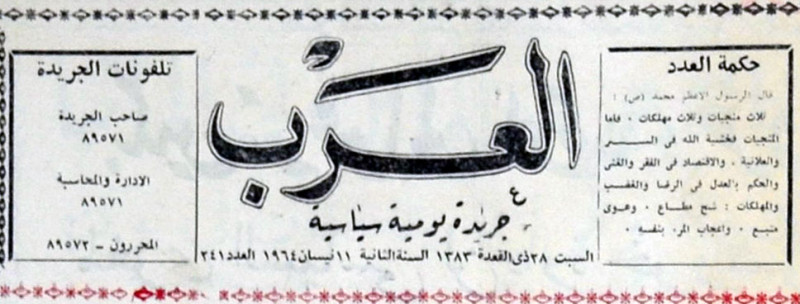 حكمة العدد
قال الرسول الاعظم محمد (ص) :
ثلاث منجيات وثلاث مهلكات ، فاما
المنجيات فخشية الله في الســــر
والعلانية ، والاقتصاد في الفقر والغنى
والحكم بالعدل في الرضا والغضب
والمهلكات : شح مطاع ، وهوى
متبع ، واعجاب المرء بنفسه ،
العرب
جريدة يومية سياسية
السبت ٢٨ ذي القعدة ١٣٨٣ السنة الثانية ١١ نيسان ١٩٦٤ العدد ٢٤١
تلفونات الجريدة
صاحب الجريدة
٨٩٥٧١
الادارة والمحاسبة
٨٩٥٧١
المحررون - ٨٩٥٧٢